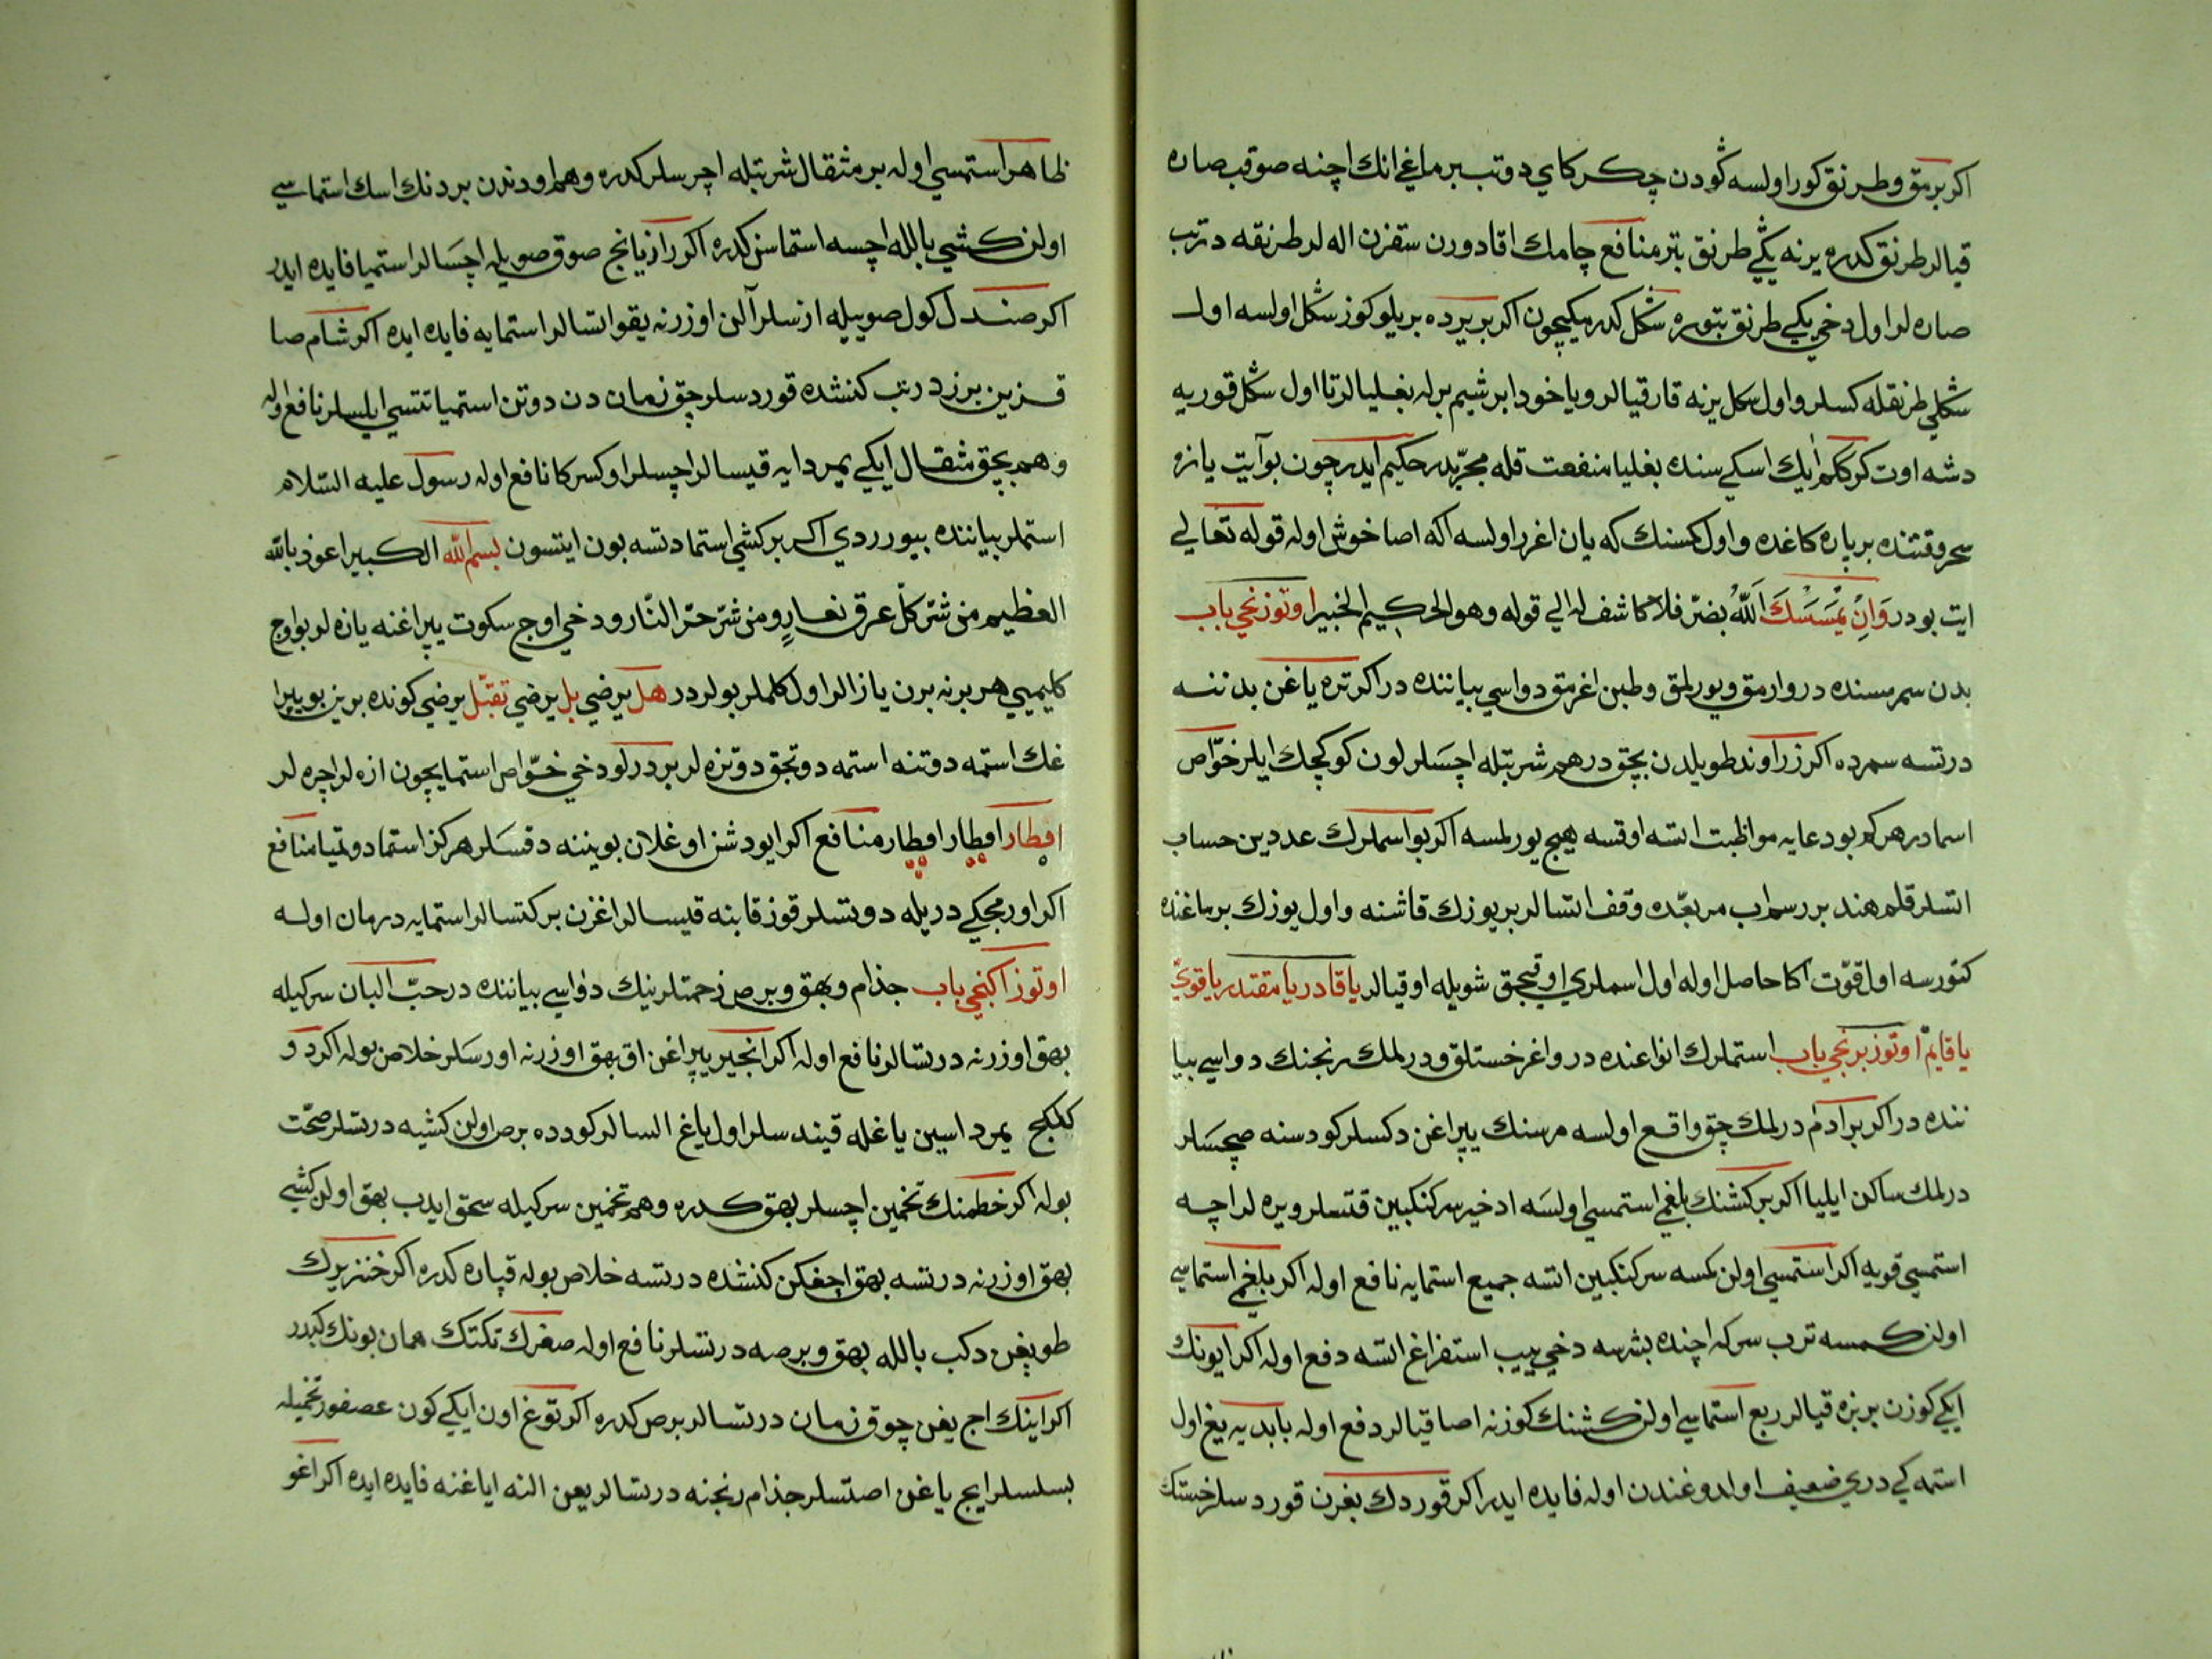 اكر برمق وطرنق كور اولسه كودن چكركاي دوتب برماغي انك اچنه صوقب صاره
قيالر طرنق كدره يرنه يكي طرنق بتر منافع چامك اقادورن ستغزن اله لر طرنقه درتب
صاره لر اول دخي يكي طرنق بتوره سكل كدرمكيچون اكر بر يرده بر يلوكوز سكل اولسه اول
سكلي طرنقله كسلر واول سكل يرنه قار قيالر ويا خود ابرشيم برله بغليالر تا اول سكل قوريه
دشه اوت كركلم ايك اسكي سنده بغليا منفعت قله مجربدر حكيم ايدر چون بو آيت يازه
سحر وقتنده بر پاره كاغده واول كمسنك كه يان اغرر اولسه اكه اصا خوش اوله قوله تعالي
ايت بودر وَاِنْ يَمْسَسْكَ اللّٰهُ بضرّ فلا كاشف له الي قوله وهو الحكيم الخبير اوتوزنجي باب
بدن سمرمسنده در وارمق ويورلمق وطبن اغرمق دواسي بياننده در اكر تره ياغن بدننه
درتسه سمرده اكر زراوند طويلدن بچق درهم شربتله اچسلر لون كوكچك ايلر خوّاص
اسمادر هركم بو دعايه مواظبت اتسه اوقسه هيچ يورلمسه اكر بو اسملرك عددين حساب
اتسلر قلم هند بر رسم اب مربعده وقف اتسالر بر يوزك قاشنه واول يوزك برماغنده
كتورسه اول قوّت اكا حاصل اوله اول اسملري اوقيجق شويله اوقيالر ياقادر يامقتدر ياقويّ
ياقايم اوتوز برنجي باب استملرك انواعنده در واغر خستلق ودرلمك رنجنك دواسي بيا
ننده در اكر بر ادم درلمك چق واقع اولسه مرسنك يپراغن دكسلر كودسنه صچسلر
درلمك ساكن ايليا اكر بر كشنك بلغمي استمسي اولسه ادخير سركنكبين قتسلر ويره لر اچه
استمسي قويه اكر استمسي اولن كمسه سركنكبين اتسه جميع استمايه نافع اوله اكر بلغمي استماسي
اولن كمسه ترب سركه اچنده بشرسه دخي ييب استفراغ اتسه دفع اوله اكر ايونك
ايكي كوزن بر بزه قيالر ربع استماسي اولن كشنك كوزنه اصا قيالر دفع اوله باديه يغ اول
استمه كي دري ضعيف اولدوغندن اوله فايده ايدر اكر قوردك بغرن قوردسلر خستك
ظاهر استمسي اوله بر مثقال شربتله اچرسلر كدره وهم اودندن بر دنك اسك استماسي
اولن كشي بالله اچسه استماسن كدره اكر رازيانج صوق صويله اچسالر استميا فايده ايدر
اكر صندل كول صوييله ازسلر آلن اوزرنه يقو اتسالر استمايه فايده ايده اكر شام صا
قزين بر زدرتب كنشده قوردسلر چق زمان دن دوتن استميا تتسي ايلسلر نافع اوله
وهم بچق مثقال ايكي يمردايه قيسالر اچسلر اوكسركا نافع اوله رسول عليه السّلام
استملر بياننده بيوردي اكر بر كشي استما دتسه بون ايتسون بسم الله الكبير اعوذ بالله
العظيم من شرّ كلّ عرق نعار ومن شرّ حرّ النّار ودخي اوچ سكوت يپراغنه يازه لر بو اوچ
كليميي هر برنه برن يازالر اول كلملر بولردر هل يرضي بل يرضي تقبّل يرضي كونده برين بو يپرا
غك استمه دوتنه استمه دوتجق دوتزه لر بردرلو دخي خوّاص استمايچون ازه لر اچره لر
افطار افطار افطار منافع اكر ايو دشن اوغلان بويننه دقسلر هركز استما دوتميا منافع
اكر اورمجكي دريله دوتسلر قوز قابنه قيسالر اغزن بركتسالر استمايه درمان اوله
اوتوز اكنجي باب جذام وبهق وبرص زحمتلرينك دواسي بياننده در حبّ البان سركيله
بهق اوزرنه درتسالر نافع اوله اكر انجير يپراغن اق بهق اوزرنه اورسلر خلاص بوله اكر دو
كلكج يمرداسين ياغله قيندسلر اول ياغ السالر كودده برص اولن كشيه درتسلر صحّت
بوله اكر خطمنك تخمين اچسلر بهق كدره وهم تخمين سركيله سحق ايدب بهق اولن كشي
بهق اوزرنه درتسه بهق اچغكن كنشده درتسه خلاص بوله قپاره كدره اكر خنزيرك
طويغن دكب بالله بهق وبرصه درتسلر نافع اوله صغرك تكتك همان بونك كبدر
اكر اينك اچ يغن چوق زمان درتسالر برص كدره اكر توغ اون ايكي كون عصفور تخميله
بسلسلر ايچ ياغن اصتسلر جذام رنجنه درتسالر يعن النه اياغنه فايده ايده اكر اغو